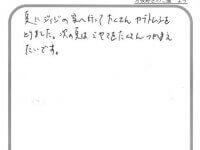 夏にジィジの家へ行って たくさん カブトムシを
とりました。次の夏は
たくさん つかまえ
たいです。